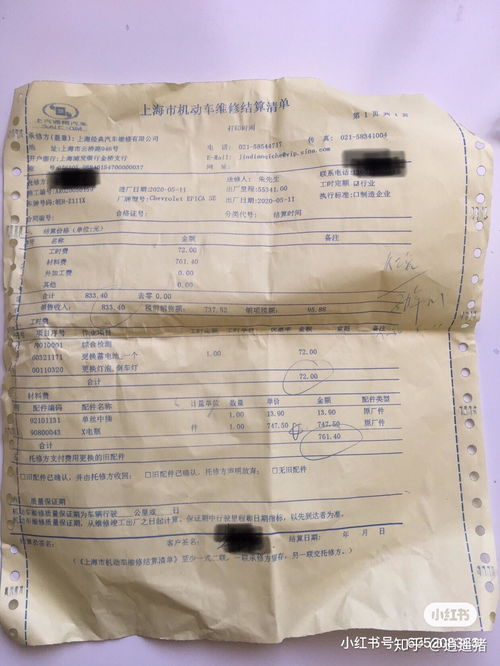 上汽通用汽车
SAIC-GM
上海市机动车维修结算清单
打印时间
第 1 页 共 1 页
承修方(盖章): 上海经典汽车维修有限公司
地 址: 上海市云桥路946号 电 话: 021-58544717 传 真: 021-58341004
开户银行: 上海浦发银行金桥支行 E-Mail: jindianqiche@vip.sina.com
网 址:
托修方 送修人: 朱先生 联系电话
施工编号: 进厂日期:2020-05-11 出厂里程:55341.00 工时定额 行业
车牌号码: 厂牌型号:Chevrolet EPICA SE 出厂日期:2020-05-11 执行标准: 制造企业
合同编号: 合格证号: 分类代号: 结算时间
结算价格(单位:元)
序号 名称 金额 备注
工时费 72.00
材料费 761.40
外加工费 0.00
其他 0.00
合计 833.40 去零 0.00
销售收入: 833.40 税前销售额: 737.52 销项税额: 95.88
工时费
项目序号 作业项目 工时定额 工时单价 优惠率 金额 备注
综合检测
60321171 更换蓄电池,一个 1.00 72.00
00110320 更换灯泡,倒车灯
合计 72.00
材料费
配件编码 配件名称 计量单位 数量 单价 金额 配件类型
92101151 单丝中插 1.00 13.90 13.90 原厂件
90800043 X电瓶 件 1.00 747.50 747.50 原厂件
合计 761.40
托修方支付费用更换的旧配件
□旧配件已确认,并由托修方收回; □旧配件已确认,托修方声明放弃; □无旧配件
质量保证期
机动车维修质量保证期为车辆行驶 公里或 日
机动车维修质量保证期,从维修竣工出厂之日起计算。保证期中行驶里程和日期指标,以先到达者为准。
结算员签名: 客户签名: 结算日期: 年 月 日
(《上海市机动车维修结算清单》至少一式二联,一联承修方留存,另一联交托修方。)
小红书
小红书号:
知乎 @逍遥猪